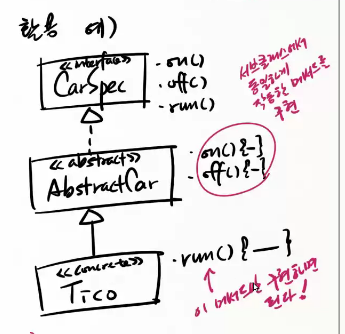 활용 예)
<<interface>>
CarSpec
·on()
·off()
·run()
서브클래스에서
동일하게
작동할 메서드를
구현
<<abstract>>
AbstractCar
·on(){-}
·off(){-}
<<concrete>>
Tico
·run(){—}
이 메서드만 구현하면
된다!